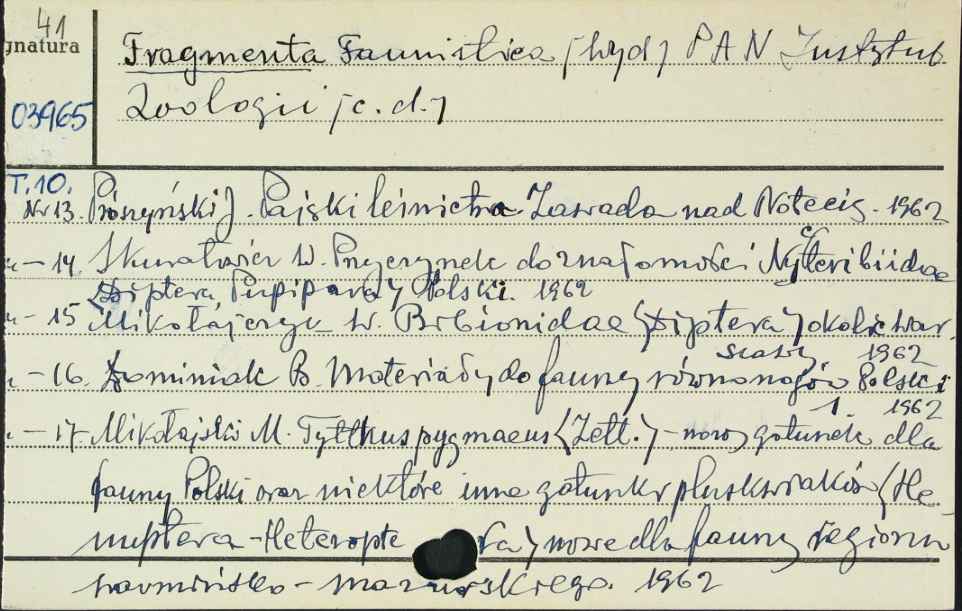 41
gnatura
Fragmenta Faunistica /wyd/ PAN Instytut
03965
Zoologii /c.d./
T.10.
Nr 13. Prószyński J. Pająki leśnictwa Zawada nad Notecią. 1962
„ - 14. Skuratowicz W. Przyczynek do znajomości Nycteribiidae
(Diptera, Pupipara) Polski. 1962
„ - 15 Mikołajczyk W. Bibionidae (Diptera) okolic War
szawy. 1962
„ - 16. Dominiak B. Materiały do fauny równonogów Polski
1. 1962
„ - 17. Mikołajski M. Tytthus pygmaeus (Zett.) - nowy gatunek dla
fauny Polski oraz niektóre inne gatunki pluskwiaków (He-
miptera-Heteroptera) nowe dla fauny regionu
warmińsko-mazurskiego. 1962